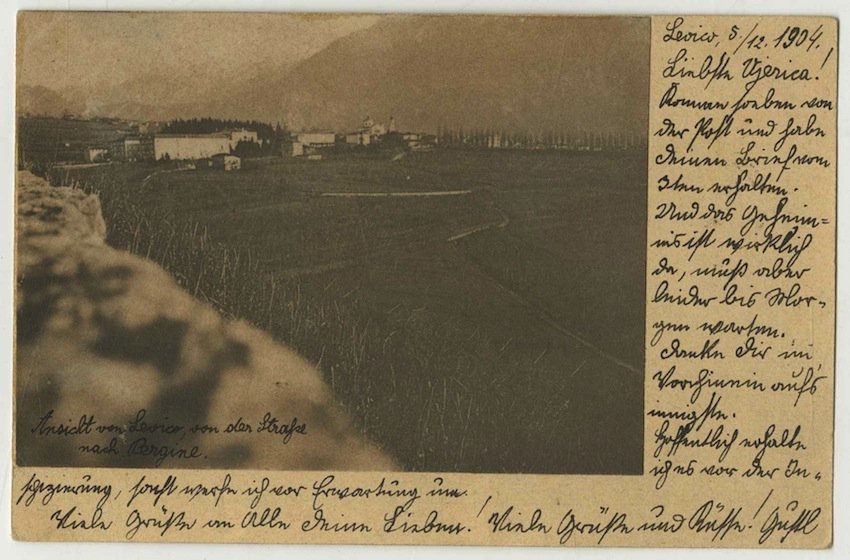 Levico, 5./12. 1904.
Liebste Vjerica!
Komme soeben von
der Post und habe
deinen Brief vom
3ten erhalten.
Und das Geheim=
nis ist wirklich
da, muß aber
leider bis Mor=
gen warten.
danke dir im
Vorhinein aufs
innigste.
Hoffentlich erhalte
ich es vor der In=
spizierung, sonst werfe ich vor Erwartung um.
Viele Grüße an Alle deine Lieben! Viele Grüße und Küsse! Gustl
Ansicht von Levico, von der Straße
nach Pergine.